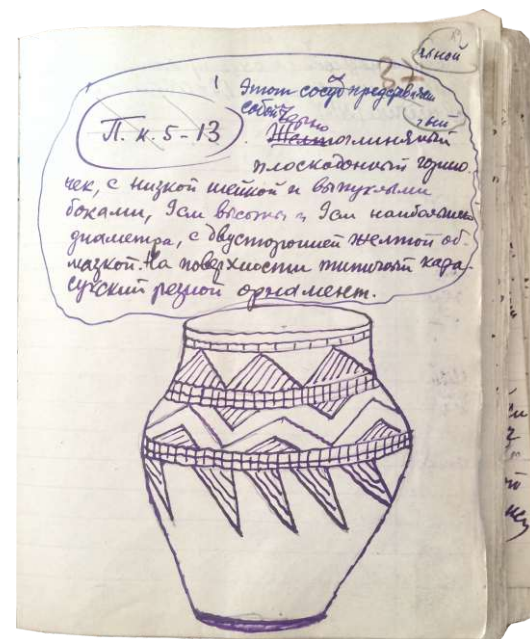 Этот сосуд представляет
собой Черно
П.к. 5-13
Желтоглиняный
плоскодонный горшо-
чек, с низкой шейкой и выпуклыми
боками, 9см высоты и 9см наибольшего
диаметра, с двусторонней желтой об-
мазкой. На поверхности типичный кара-
сукский резной орнамент.